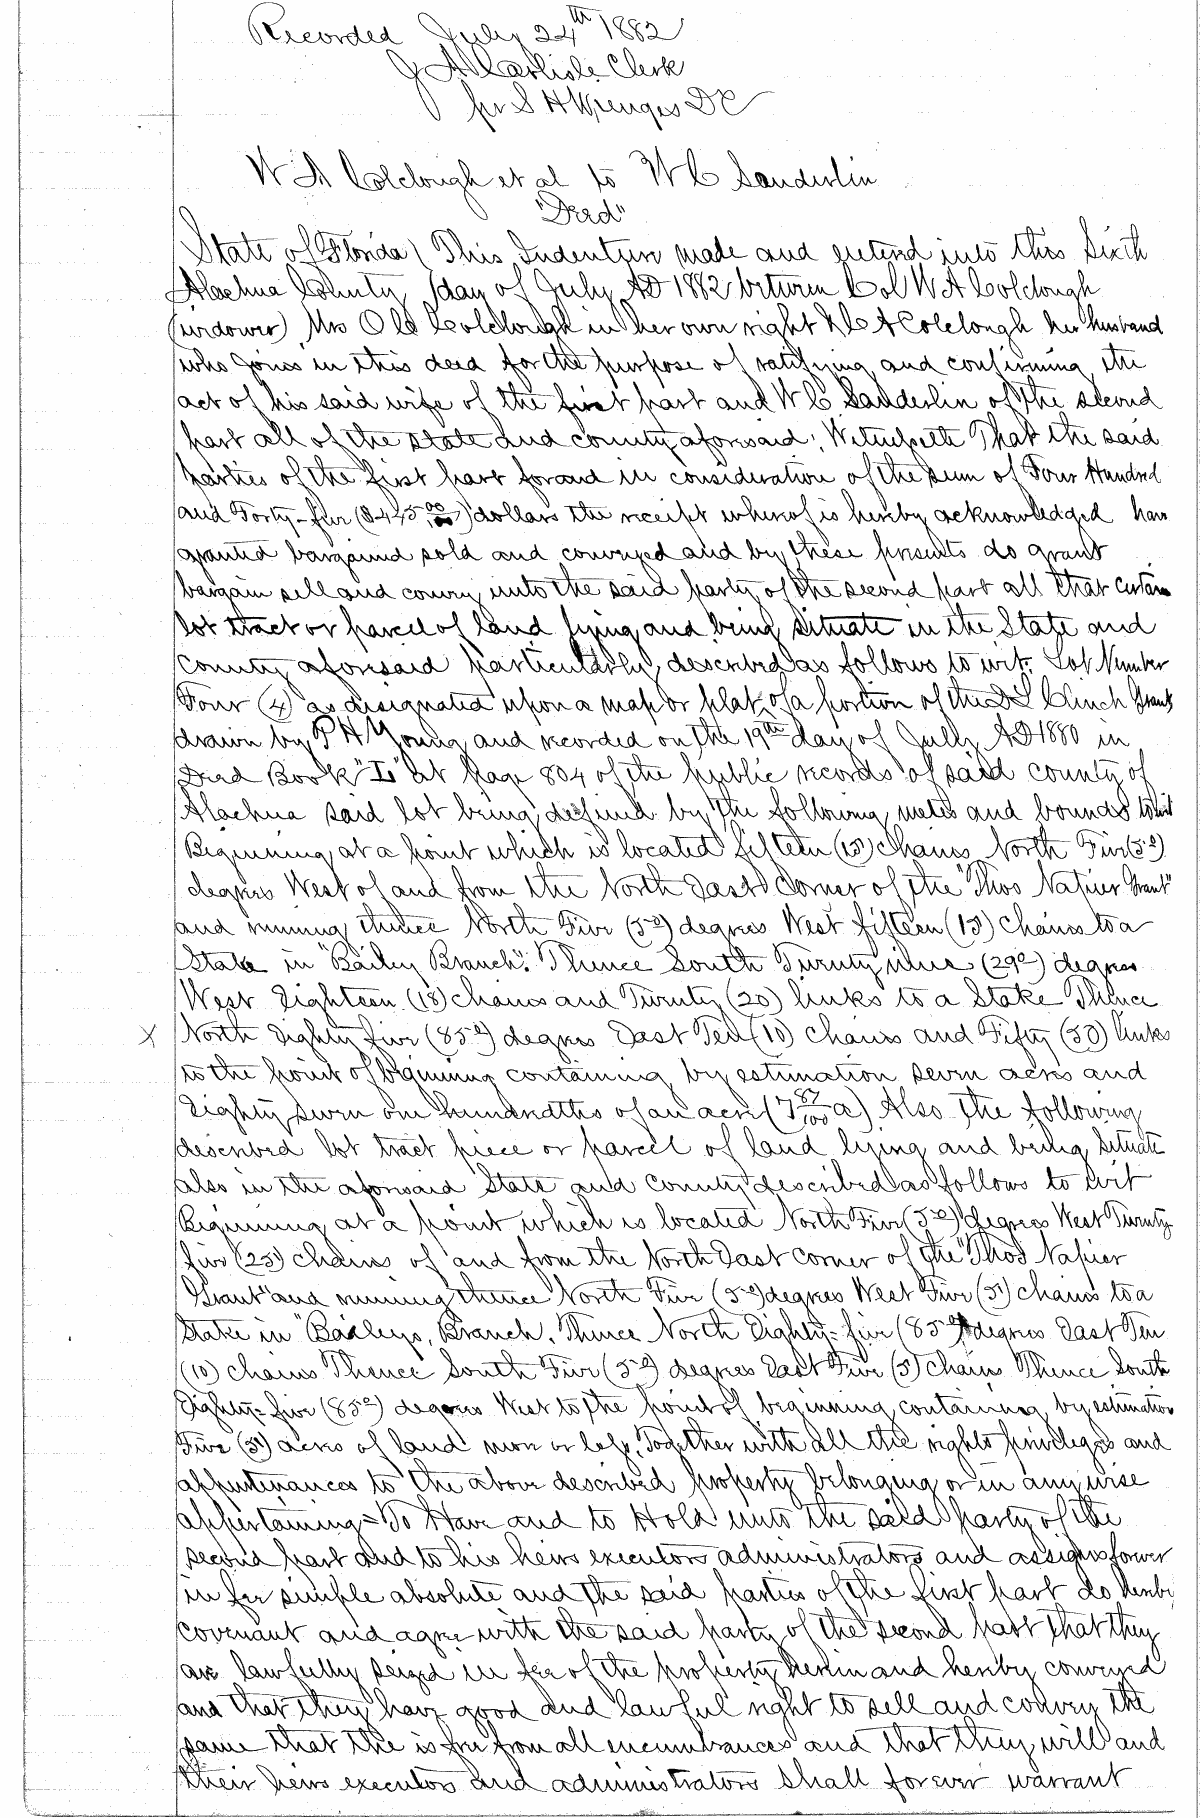 Recorded July 24th 1882
J A Carlisle Clerk
per S H Wienges DC
W A Colclough et al to W C Sanderlin
"Deed"
State of Florida ( This Indenture made and entered into this Sixth
Alachua County ( day of July AD 1882 between Col W A Colclough
(widower) Mrs O L C Colclough in her own right & A Colclough her husband
who joins in this deed for the purpose of ratifying and confirming the
act of his said wife of the first part and W C Sanderlin of the second
part all of the state and county aforesaid; Witnesseth That the said
parties of the first part for and in consideration of the sum of Four Hundred
and Forty-five ($445.00/00) dollars the receipt whereof is hereby acknowledged have
granted bargained sold and conveyed and by these presents do grant
bargain sell and convey unto the said party of the second part all that certain
lot tract or parcel of land lying and being situate in the State and
County aforesaid particularly described as follows to wit: Lot Number
Four (4) as designated upon a map or plat of a portion of the D L Clinch Grant
drawn by P H Young and recorded on the 19th day of July AD 1880 in
Deed Book "L" at page 804 of the public records of said county of
Alachua said lot being defined by the following metes and bounds to wit
Beginning at a point which is located fifteen (15) chains North Five (5°)
degrees West of and from the North East Corner of the "Thos Napier Grant"
and running thence North Five (5°) degrees West fifteen (15) chains to a
Stake in "Bailey Branch". Thence South Twenty nine (29°) degrees
West Eighteen (18) chains and Twenty (20) links to a Stake Thence
X North Eighty five (85°) degrees East Ten (10) chains and Fifty (50) links
to the point of beginning containing by estimation seven acres and
Eighty seven one hundredths of an acre (7 87/100 a) Also the following
described lot tract piece or parcel of land lying and being Situate
also in the aforesaid State and County described as follows to wit
Beginning at a point which is located North Five (5°) degrees West Twenty
five (25) chains of and from the North East Corner of the "Thos Napier
Grant" and running thence North Five (5°) degrees West Five (5) chains to a
Stake in "Baileys, Branch. Thence North Eighty-five (85°) degrees East Ten
(10) chains Thence South Five (5°) degrees East Five (5) Chains Thence South
Eighty-five (85°) degrees West to the point of beginning containing by estimation
Five (5) acres of land more or less, Together with all the rights privileges and
appurtenances to the above described property belonging or in any wise
appertaining = To Have and to Hold unto the said party of the
second part and to his heirs executors administrators and assigns forever
in fee simple absolute and the said parties of the first part do hereby
covenant and agree with the said party of the second part that they
are lawfully seized in fee of the property herein and hereby conveyed
and that they have good and lawful right to sell and convey the
same that the is free from all encumbrances and that they will and
their heirs executors and administrators shall forever warrant